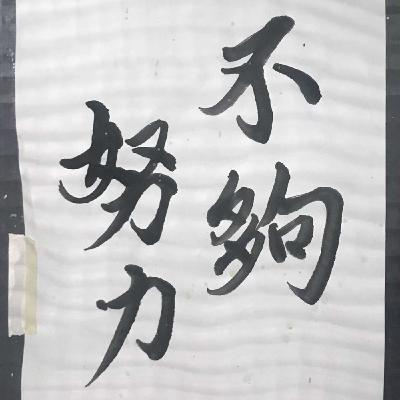 不夠
努力